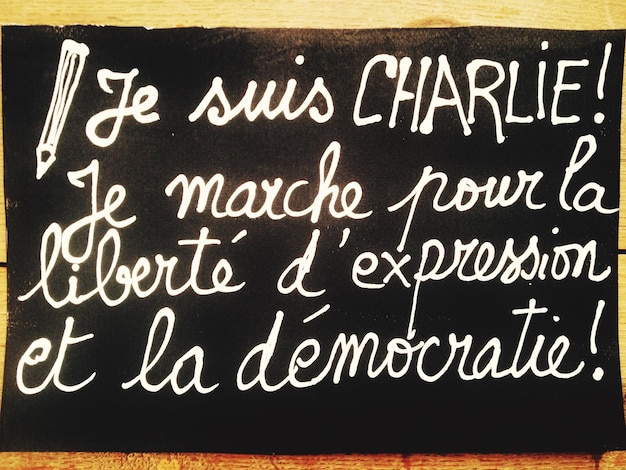 Je suis CHARLIE!
Je marche pour la
liberté d'expression
et la démocratie!